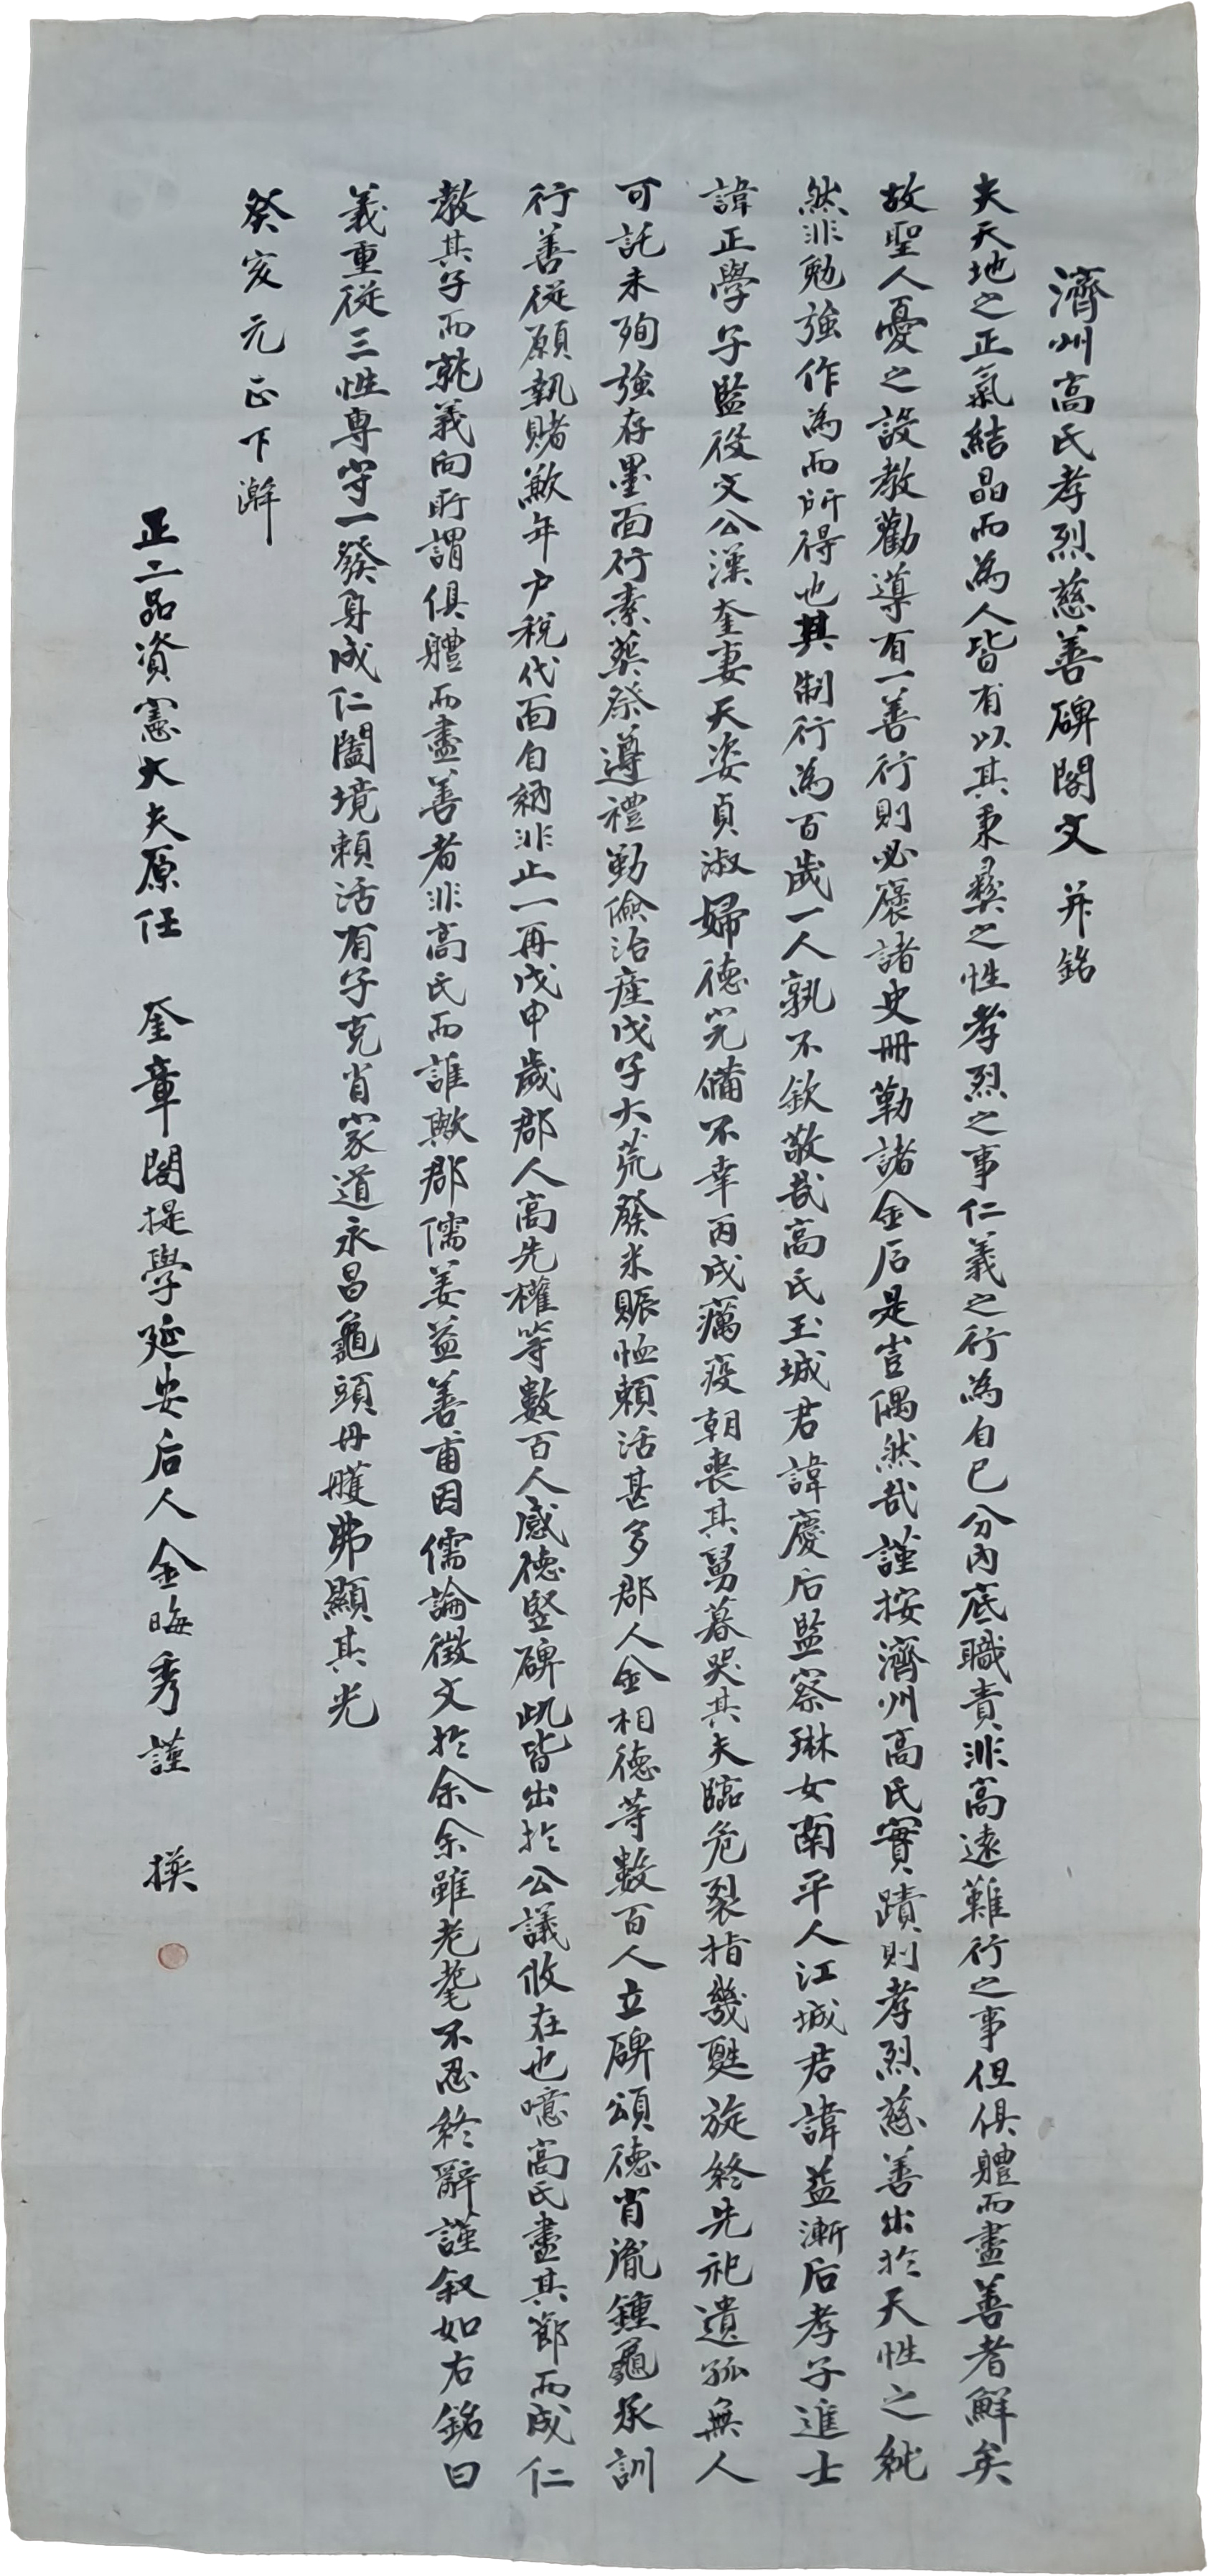 濟州高氏孝烈慈善碑閣文 并銘
夫天地之正氣結晶而為人皆有以其秉彛之性孝烈之事仁義之行為自己分內底職責非高遠難行之事但俱體而盡善者鮮矣
故聖人憂之設教勸導有一善行則必褒諸史冊勒諸金石是豈偶然哉謹按濟州高氏實蹟則孝烈慈善出於天性之純
然非勉強作為而所得也其制行為百歲一人孰不欽敬哉高氏玉城君諱慶后監察琳女南平人江城君諱益漸后孝子進士
諱正學子監役文公漢奎妻天姿貞淑婦德完備不幸丙戌癘疫朝喪其舅暮哭其夫臨危裂指幾甦旋終先祀遺孤無人
可託未殉強存墨面行素葬祭遵禮勤儉治產戊子大荒發米賑恤賴活甚多郡人金相德等數百人立碑頌德肖胤鍾龜承訓
行善從願執賭歉年户稅代面自納非止一再戊申歲郡人高先權等數百人感德竪碑此皆出於公議攸在也噫高氏盡其節而成仁
教其子而就義向所謂俱體而盡善者非高氏而誰歟郡儒姜益善甫因儒論徵文於余余雖老耄不忍終辭謹叙如右銘曰
義重從三性專守一發身成仁闔境賴活有子克肖家道永昌龜頭丹雘弗顯其光
癸亥元正下澣
正二品資憲大夫原任 奎章閣提學延安后人金晦秀謹 撰